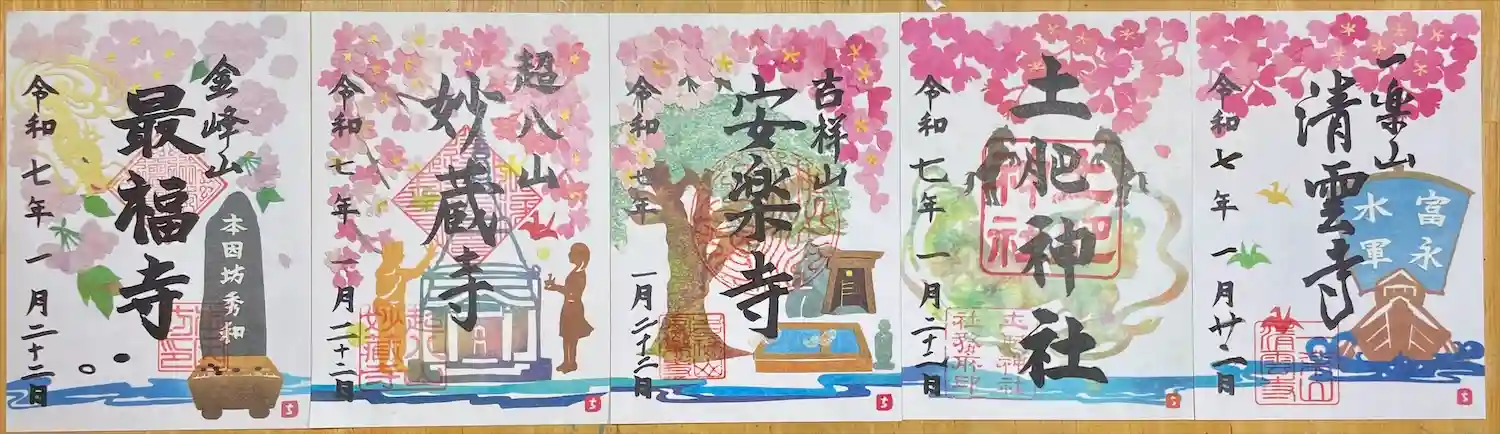 金峰山
最福寺
令和七年一月二十二日
本因坊秀和
超八山
妙蔵寺
令和七年一月二十二日
妙蔵寺
吉祥山
安楽寺
令和七年一月二十二日
土肥神社
令和七年一月二十二日
土肥神社
社務所印
一楽山
清雲寺
令和七年一月廿二日
富永
水軍
清雲寺